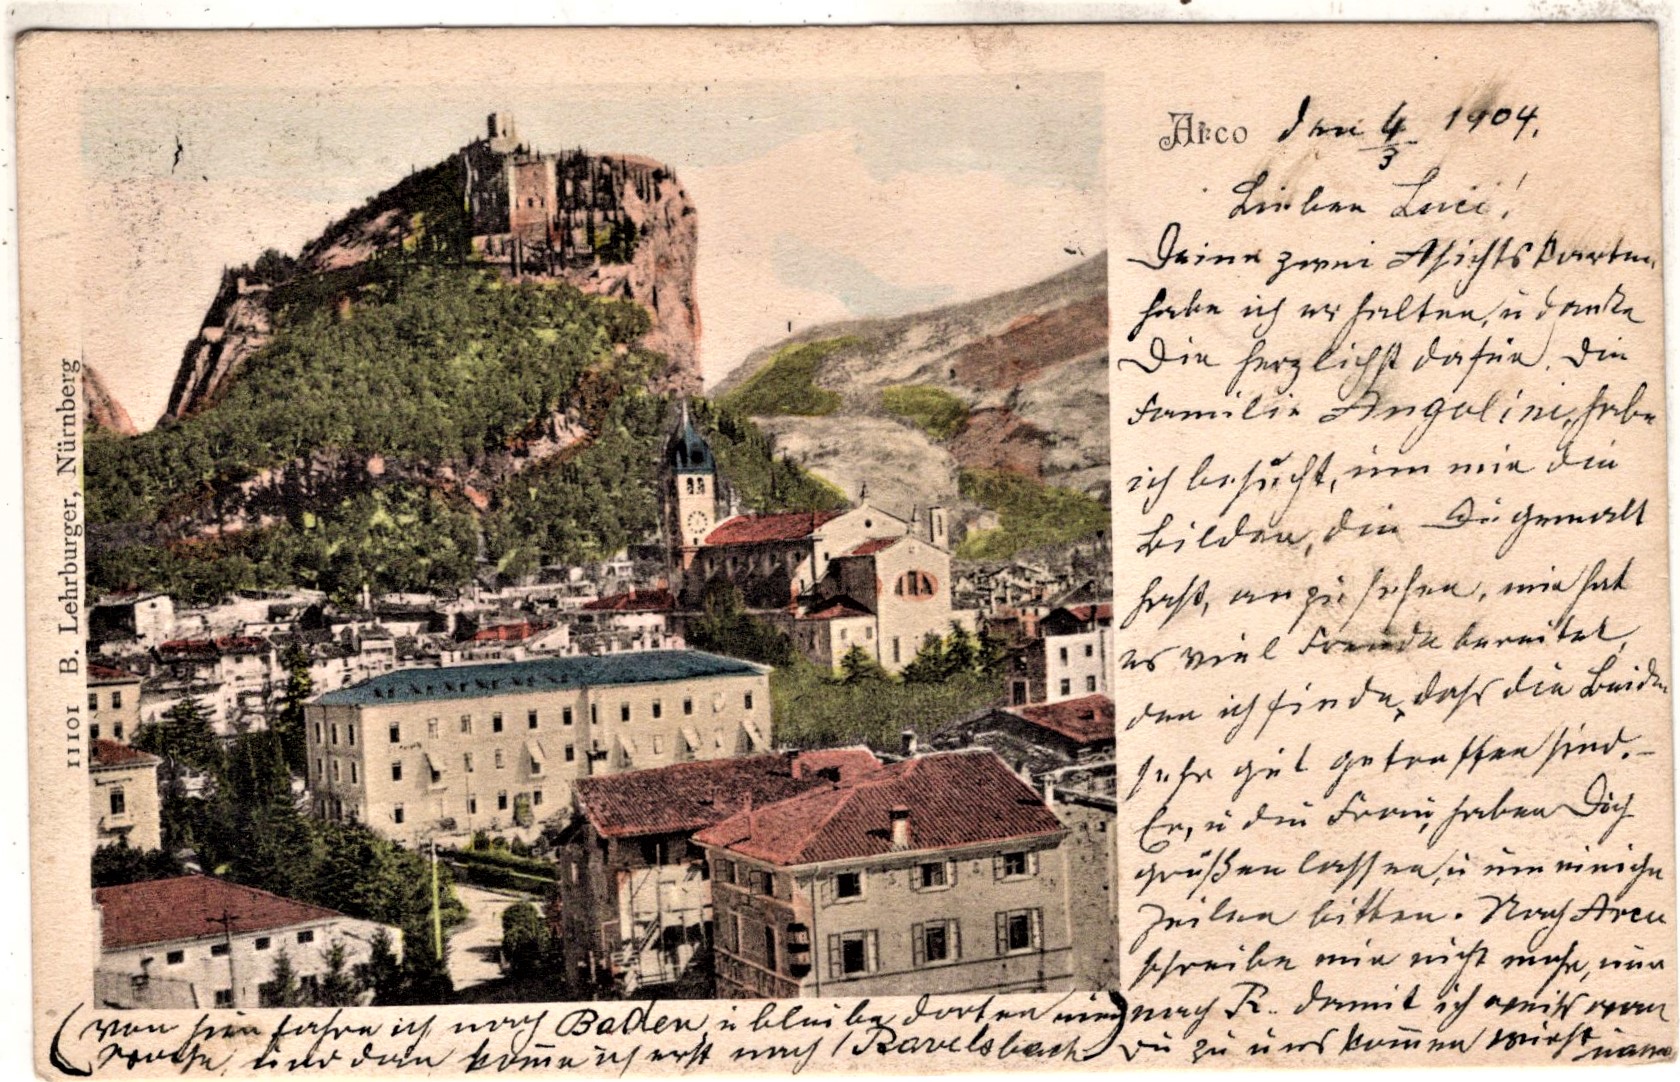 11101 B. Lehrburger, Nürnberg
Arco den 4/3 1904.
Lieber Luci!
Deine zwei Asichtskarten
habe ich erhalten, u danke
Dir herzlichst dafür. Die
Familie Angelini, habe
ich besucht, um mir die
Bilder, die Du gemalt
hast, anzusehen, mir hat
es viel Freude bereitet,
den ich finde, daß die Beiden
sehr gut getroffen sind. –
Er, u die Frau, haben Dich
grüßen lassen, u um einige
Zeilen bitten. Nach Arco
schreibe mir nicht mehr, nur
nach R. damit ich weiß wan
Du zu uns kom̅en wirst
(von hier fahre ich nach Baden, u bleibe dorten eine
Woche, und dan kom̅e ich erst nach Ravelsbach)